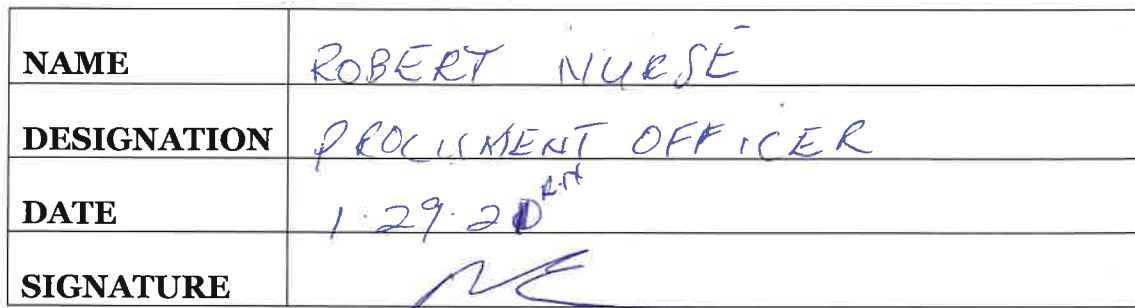 NAME ROBERT NURSE
DESIGNATION PROCUMENT OFFICER
R.N
DATE 1.29.20
SIGNATURE